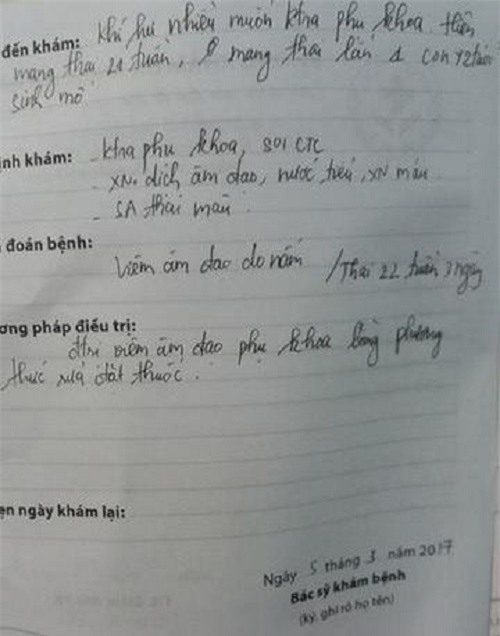 đến khám: Khí hư nhiều muốn ktra phụ khoa hiện
mang thai 21 tuần, mang thai lần 1 con
sinh mổ
ịnh khám: - ktra phụ khoa, soi CTC
- XN. dịch âm đạo, nước tiểu, XN máu
- SA thai màu
đoán bệnh:
Viêm âm đạo do nấm /Thai 22 tuần 3 ngày
ơng pháp điều trị:
đtri viêm âm đạo phụ khoa bằng phương
thức rửa đặt thuốc.
ẹn ngày khám lại:
Ngày 5 tháng 3 năm 2017
Bác sỹ khám bệnh
(ký, ghi rõ họ tên)